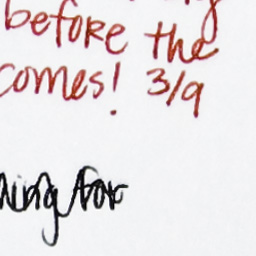 before the
comes! 3/9
for